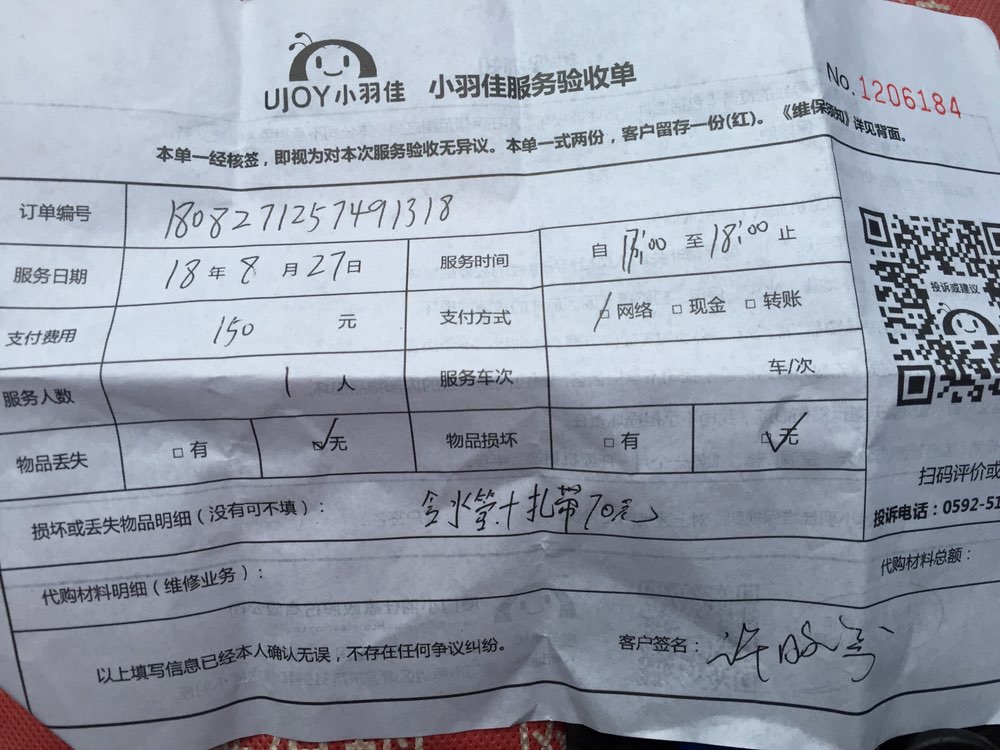 UJOY小羽佳 小羽佳服务验收单
No.1206184
本单一经核签，即视为对本次服务验收无异议。本单一式两份，客户留存一份(红)。《维保须知》详见背面。
订单编号 180827125749 1318
服务日期 18年8月27日 服务时间 自 :00 至18:00止
支付费用 150 元 支付方式 □网络 □现金 □转账
服务人数 1 人 服务车次 车/次
物品丢失 □有 ☑无 物品损坏 □有 ☑无
投诉或建议
扫码评价或
投诉电话：0592-51
损坏或丢失物品明细（没有可不填）： 含水管+扎带70元
代购材料明细（维修业务）： 代购材料总额：
以上填写信息已经本人确认无误，不存在任何争议纠纷。 客户签名：许